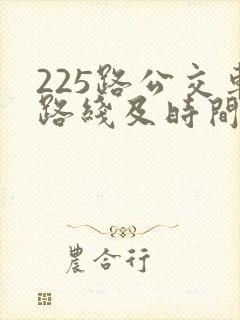 225路公交車
路綫及時間
農合行